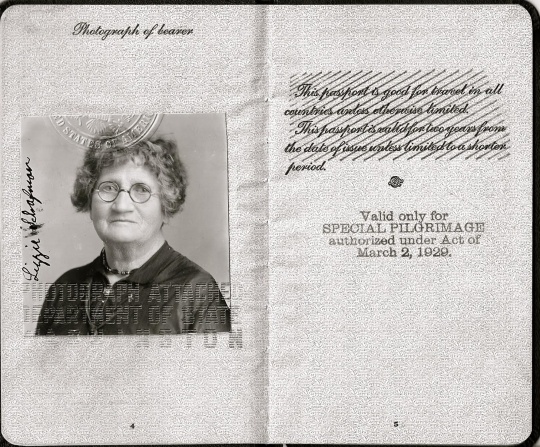 Photograph of bearer
STATES OF
Lizzie
PHOTOGRAPH ATTACHED
DEPARTMENT OF STATE
4
This passport is good for travel in all
countries unless otherwise limited.
This passport is valid for two years from
the date of issue unless limited to a shorter
period.
Valid only for
SPECIAL PILGRIMAGE
authorized under Act of
March 2, 1929.
5